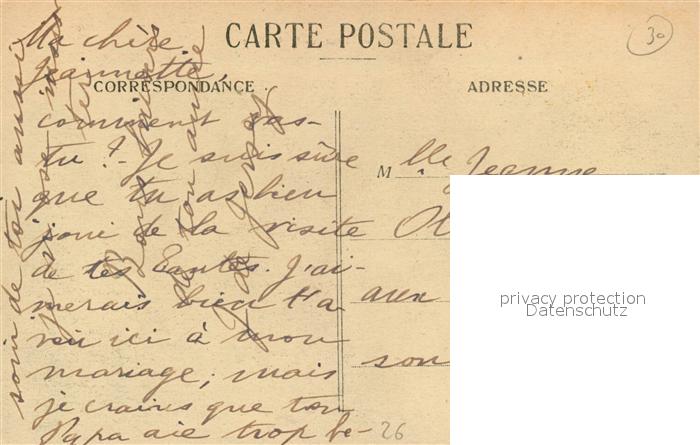 CARTE POSTALE
30
CORRESPONDANCE
ADRESSE
Ma chère
Jeannette,
comment vas-
tu ? - Je suis sûre
que tu as bien
joui de la visite
de tes tantes. J'ai-
merais bien t'a
voir ici à mon
mariage; mais
je crains que ton
Papa aie trop be-
soin de toi aussi
Bons baisers
de ton amie
M lle Jeanne
Ol
aux
son
26
privacy protection
Datenschutz